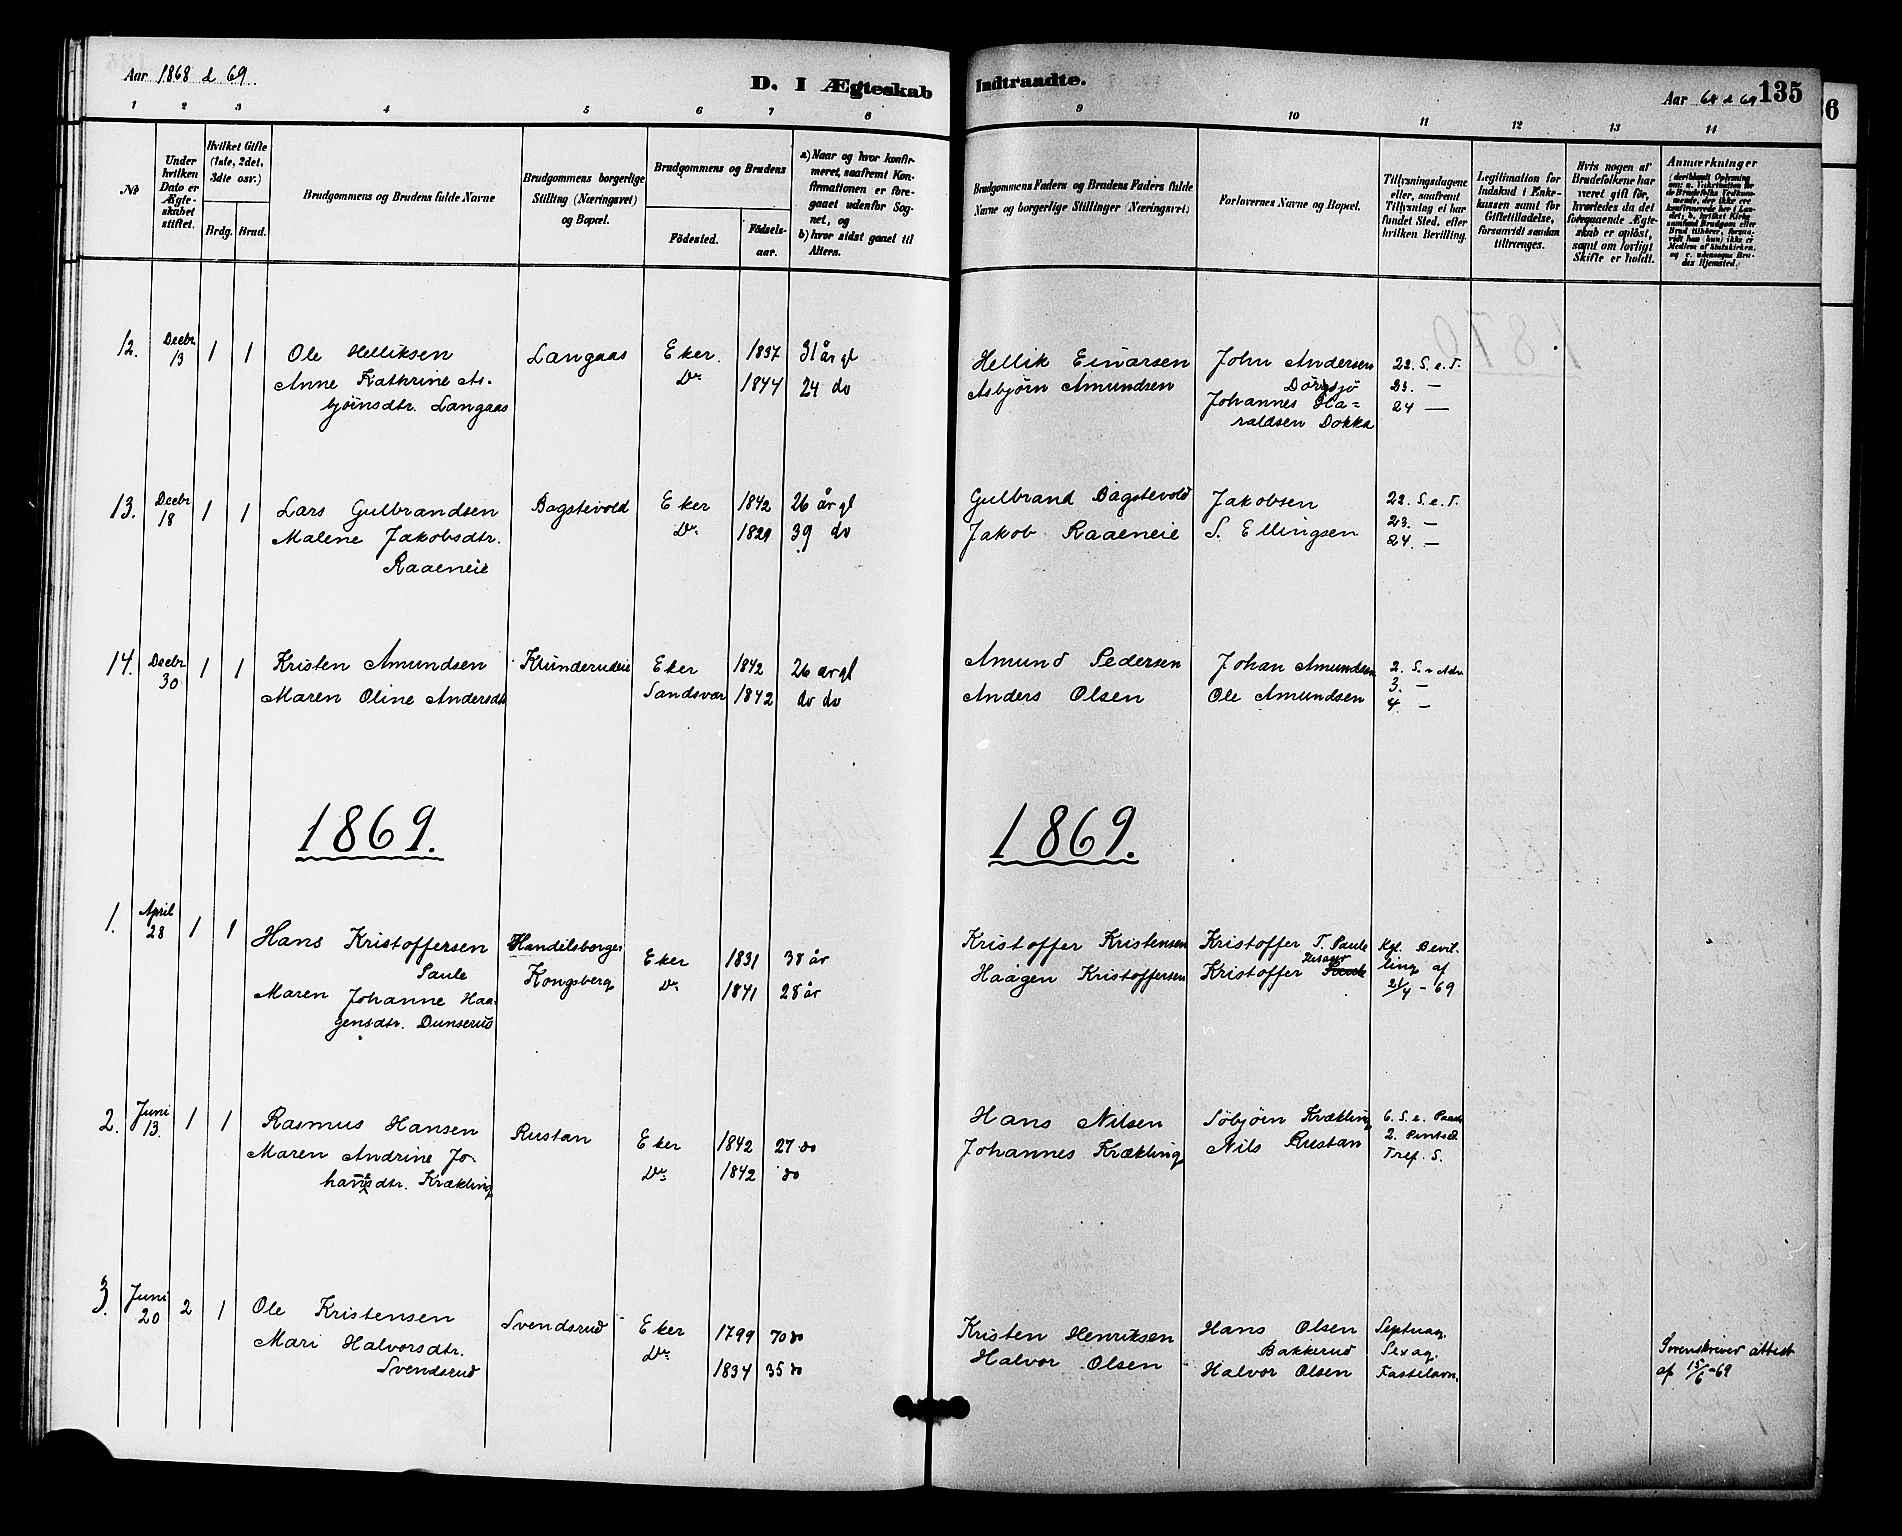 Aar 1868 & 69.
D. I Ægteskab Indtraadte.
Aar 68 & 69
135
6
1 2 3 4 5 6 7 8 9 10 11 12 13 14
No
Under hvilken Dato er Ægteskabet stiftet.
Hvilket Gifte (1ste, 2det, 3die osv.)
Brdg. Brud.
Brudgommens og Brudens fulde Navne
Brudgommens borgerlige Stilling (Næringsvei) og Bopæl.
Brudgommens og Brudens
Födested.
Födsels-aar.
a) Naar og hvor konfirmeret, saafremt Konfirmationen er foregaaet udenfor Sognet, og
b) hvor sidst gaaet til Alters.
Brudgommens Faders og Brudens Faders fulde Navne og borgerlige Stillinger (Næringsvei)
Forlovernes Navne og Bopæl.
Tillysningsdagene eller, saafremt Tillysning ei har fundet Sted, efter hvilken Bevilling.
Legitimation for Indskud i Enkekassen samt for Giftetilladelse, forsaavidt saadan tiltrænges.
Hvis nogen af Brudefolkene har været gift för, hvorledes da det foregaaende Ægteskab er oplöst, samt om lovligt Skifte er holdt.
Anmærkninger
12. Decbr 13 1 1 Ole Helliksen Langaas Eker 1837 31 år gl Hellik Einarsen John Andersen 22. S. e. T.
Anne Kathrine As- Do 1844 24 do Asbjørn Amundsen Dörgsjö 23. —
bjørnsdtr. Langaas Johannes Ha= 24 —
raldsen Dokka
13. Decbr 18 1 1 Lars Gulbrandsen Bagstevold Eker 1842 26 år gl Gulbrand Bagstevold Jakobsen 22. S. e. T.
Malene Jakobsdtr. Do 1829 39 do Jakob Raaeneie S. Ellingsen 23. —
Raaeneie 24. —
14. Decbr 30 1 1 Kristen Amundsen Klunderudeie Eker 1842 26 år gl Amund Pedersen Johan Amundsen 2. S. i Adv.
Maren Oline Andersdtr Sandsvær 1842 do do Anders Olsen Ole Amundsen 3. —
4 —
1869. 1869.
1. April 28 1 1 Hans Kristoffersen Handelsborger Eker 1831 38 år Kristoffer Kristensen Kristoffer T. Saule Kgl. Bevil-
Saule Kongsberg Do 1841 28 år Haagen Kristoffersen Kristoffer ling af
Maren Johanne Haa- 21/4 - 69
gensdtr. Dunserud
2. Juni 13. 1 1 Rasmus Hansen Rustan Eker 1842 27 do Hans Nilsen Söbjörn Krækling 6. S. e. Paaske
Maren Andrine Jo- Do 1842 do Johannes Krækling Nils Rustan 2. Pintsed
hansdtr. Krækling Tref. S.
3. Juni 20 2 1 Ole Kristensen Svendsrud Eker 1799 70 do Kristen Henriksen Hans Olsen Septuag.
Mari Halvorsdtr. Do 1834 35 do Halvor Olsen Bakkerud Sexag. Sorenskriver attest
Svendsrud Halvor Olsen Fastelavn. af 15/6-69